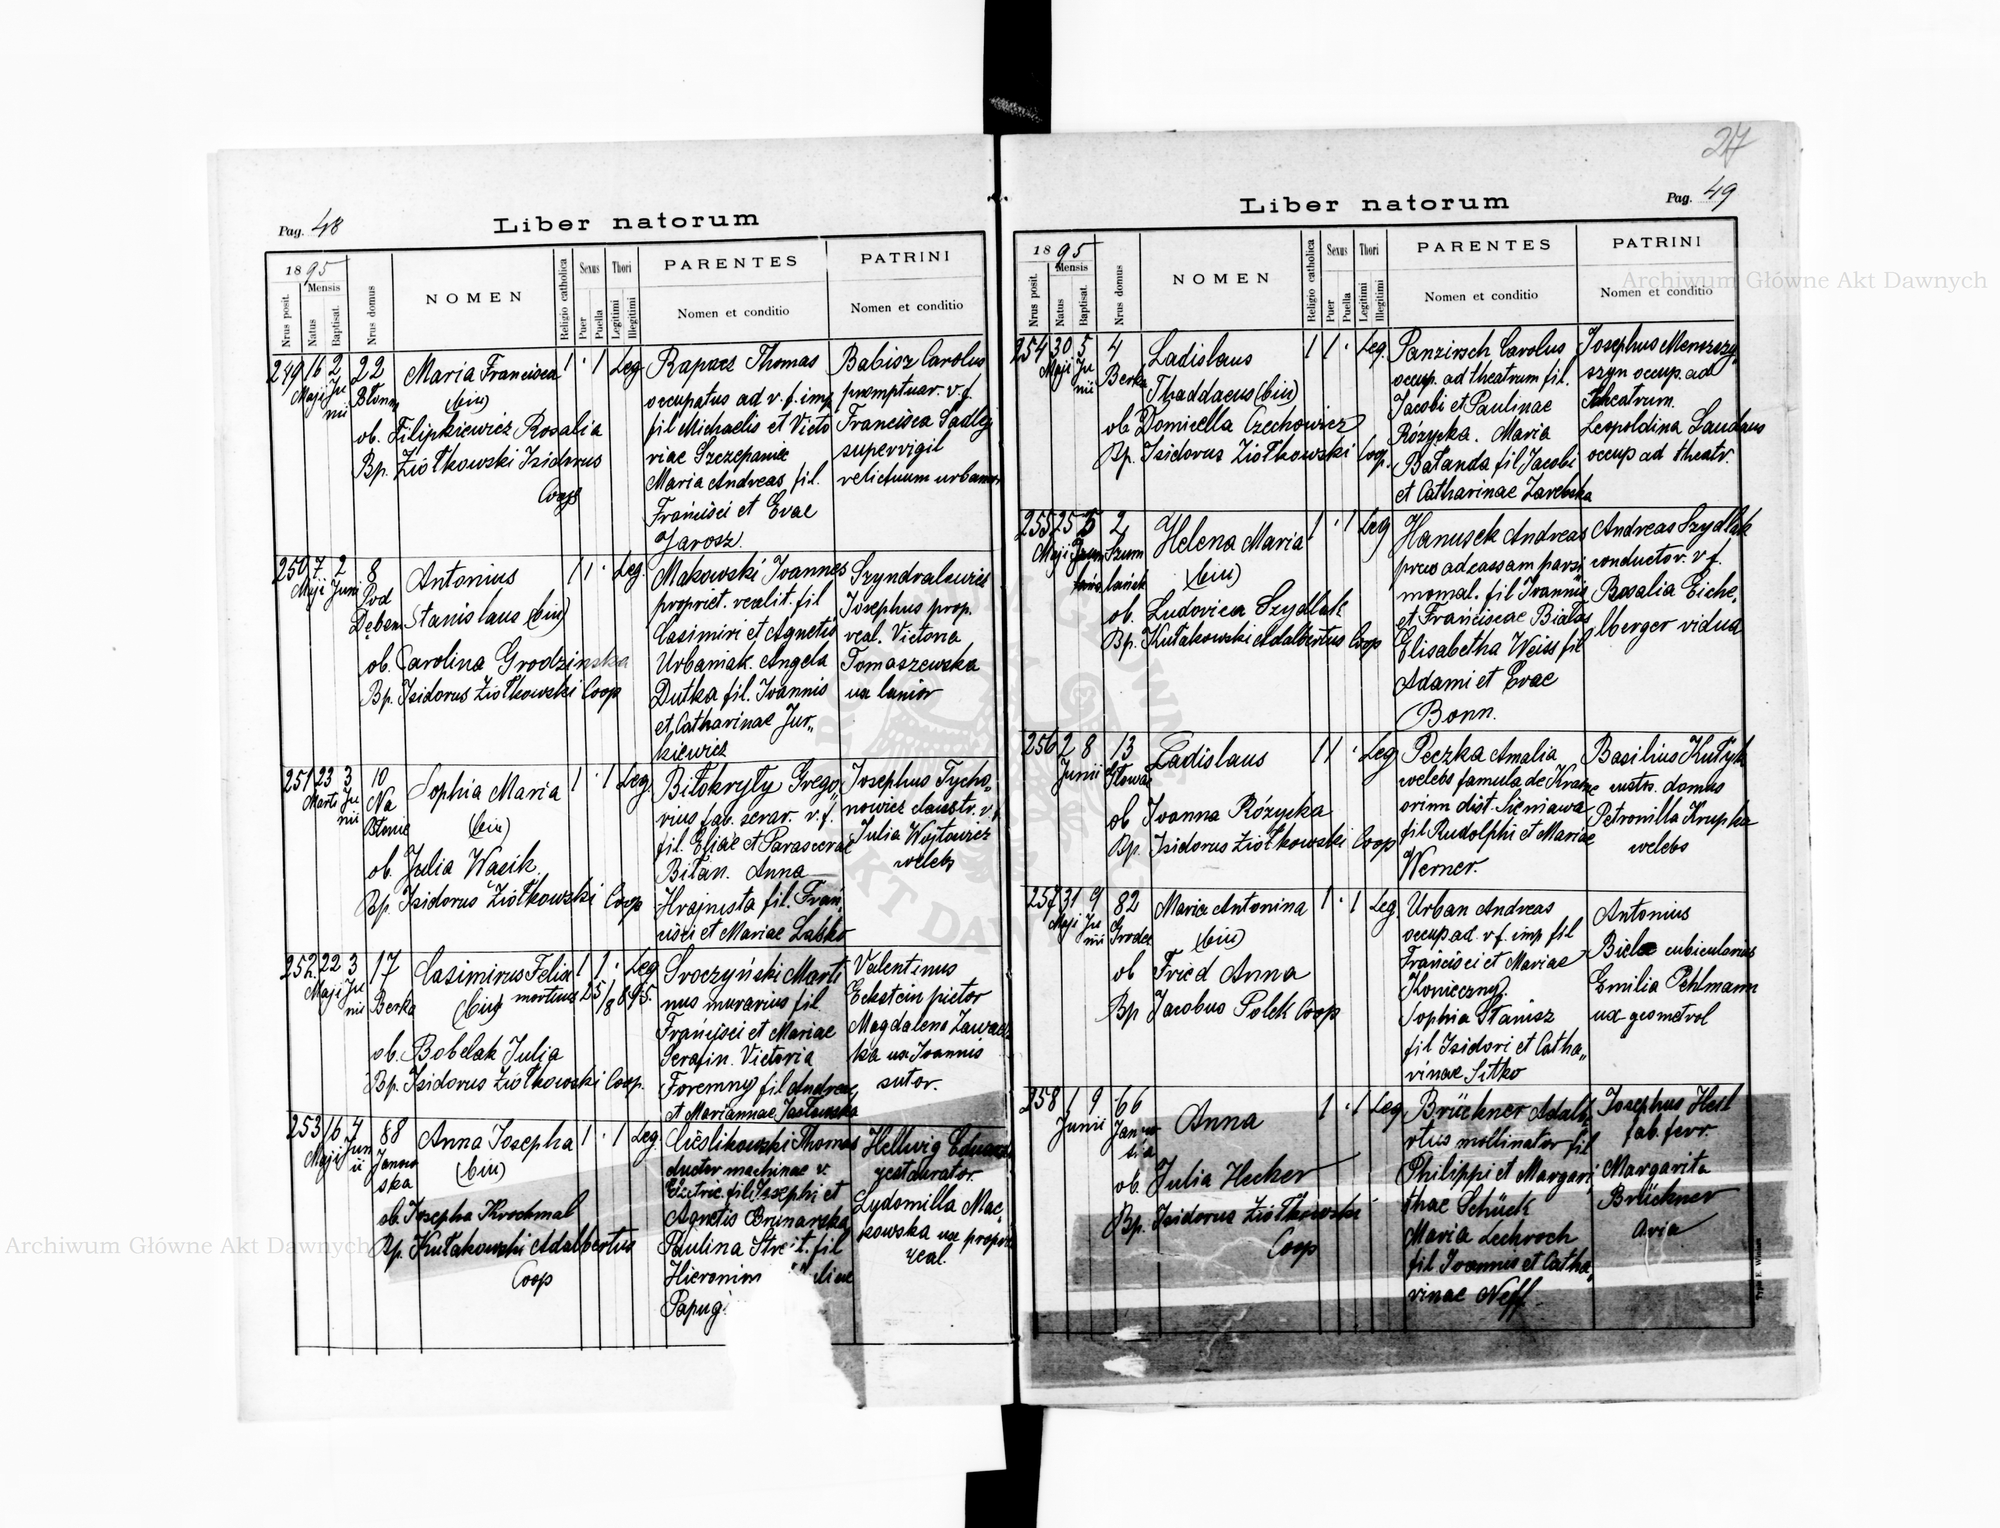 Pag. 48
Liber natorum
1895
Mensis
Nrus posit.
Natus
Baptisat.
Nrus domus
NOMEN
Religio catholica
Sexus
Puer
Puella
Thori
Legitimi
Illegitimi
PARENTES
Nomen et conditio
PATRINI
Nomen et conditio
249 16 Maji 2 Junii 22 Błonie
Maria Francisca
(bin)
ob. Filipkiewicz Rosalia
Bp. Ziółkowski Isidorus
Coop
1 · 1 Leg
Rapacz Thomas
occupatus ad v. f. imp
fil Michaelis et Victo
riae Szczepaniec
Maria Andreas fil.
Francisci et Evae
Jarosz.
Babisz Carolus
promptuar. v. f.
Francisca Sadlej
supervigil
vectiruum urbanor
250 7 Maji 2 Junii 8 Pod Dębem
Antonius
Stanislaus (bin)
ob. Carolina Grodzinska
Bp. Isidorus Ziółkowski Coop
1 1 · Leg.
Makowski Ioannes
propriet. realit. fil
Casimiri et Agnetis
Urbaniak. Angela
Dutka fil. Ioannis
et Catharinae Jur„
kiewicz
Szyndralewicz
Iosephus prop.
real. Victoria
Tomaszewska
ux lanior
251 23 Marti 3 Junii 10 Na Błonie
Sophia Maria
(bin)
ob. Julia Wacik.
Bp. Isidorus Ziółkowski Coop
1 · 1 Leg.
Biłokryły Grego„
rius fab. serar. v. f.
fil. Eliae et Parascevae
Bilan. Anna
Hrajnista fil. Fran„
cisci et Mariae Labko
Iosephus Tycho„
nowicz claustr. v. f.
Julia Wojtowicz
coelebs
252 22 Maji 3 Junii 17 Berka
Casimirus Felix
(bin) mortuus 25/8 895.
ob. Bobelak Julia
Bp. Isidorus Ziółkowski Coop.
1 1 · Leg
Sroczyński Marti
nus murarius fil
Francisci et Mariae
Serafin. Victoria
Foremny fil Andreae
et Mariannae Jasłowska
Valentinus
Eckstein pictor
Magdalena Zawadz
ka ux Ioannis
sutor.
253 16 Maji 4 Junii 88 Janowska
Anna Iosepha
(bin)
ob. Iosepha Krochmal
Bp. Kułakowski Adalbertus
Coop
1 · 1 Leg
Cieślikowski Thomas
ductor machinae v.
Elzetric. fil Iosephi et
Agnetis Brunarska
Paulina Streit. fil
Hieronim
Papug
Hellwig Eduard
restaurator.
Lydomilla Mac„
kowska ux propr.
real.
27
Pag. 49
Liber natorum
1895
Mensis
Nrus posit.
Natus
Baptisat.
Nrus domus
NOMEN
Religio catholica
Sexus
Puer
Puella
Thori
Legitimi
Illegitimi
PARENTES
Nomen et conditio
PATRINI
Nomen et conditio
254 30 Maji 5 Junii 4 Berka
Ladislaus
Thaddaeus (bin)
ob Domicella Czechowicz
Bp. Isidorus Ziółkowski Coop.
1 1 · Leg.
Panzirsch Carolus
occup. ad theatrum fil.
Jacobi et Paulinae
Różycka. Maria
Batanda fil Jacobi
et Catharinae Zarebska
Iosephus
szyn occup. ad
theatrum.
Leopoldina Laudaus
occup ad theatr.
255 25 Maji 5 2
Helena Maria
(bin)
ob. Ludovica Szydlak
Bp. Kułakowski Adalbertus Coop
1 · 1 Leg
Hanusek Andreas
momal. fil Ioannis
et Franciscae Białas
Elisabetha Weiss fil
Adami et Evae
Bonn.
Andreas Szydlak
conductor. v. f.
Rosalia Eiche„
lberger vidua
256 2 8 Junii 13
Ladislaus
ob Ioanna Różycka
Bp. Isidorus Ziółkowski Coop
1 1 · Leg
Peczka Amalia
coelebs famula de Krasne
orinn dist. Sieniawa
fil Rudolphi et Mariae
Werner.
Basilius Kułyk
custs. domus
Petronilla Krupka
coelebs
257 31 Maji 9 Junii 82 Grodec
Maria Antonina
(bin)
ob Fried Anna
Bp Jacobus Polek Coop
1 · 1 Leg
Urban Andreas
occup ad. v. f. imp fil
Francisci et Mariae
Konieczny.
Sophia Stanisz
fil Isidori et Catha„
rinae Sitko
Antonius
Biela cubicularius
Emilia Pehlmann
ux geometrol
258 1 Junii 9 66 Janowska
Anna
ob. Julia Hecker
Bp. Isidorus Ziółkowski
Coop
1 · 1 Leg
Brückner Adalb„
rtus mollinator fil
Philippi et Margari„
thae Schück
Maria Lechroch
fil Ioannis et Catha„
rinae Neff.
Iosephus Herl
fab. ferr.
Margarita
Brückner
avia
Archiwum Główne Akt Dawnych
Archiwum Główne Akt Dawnych